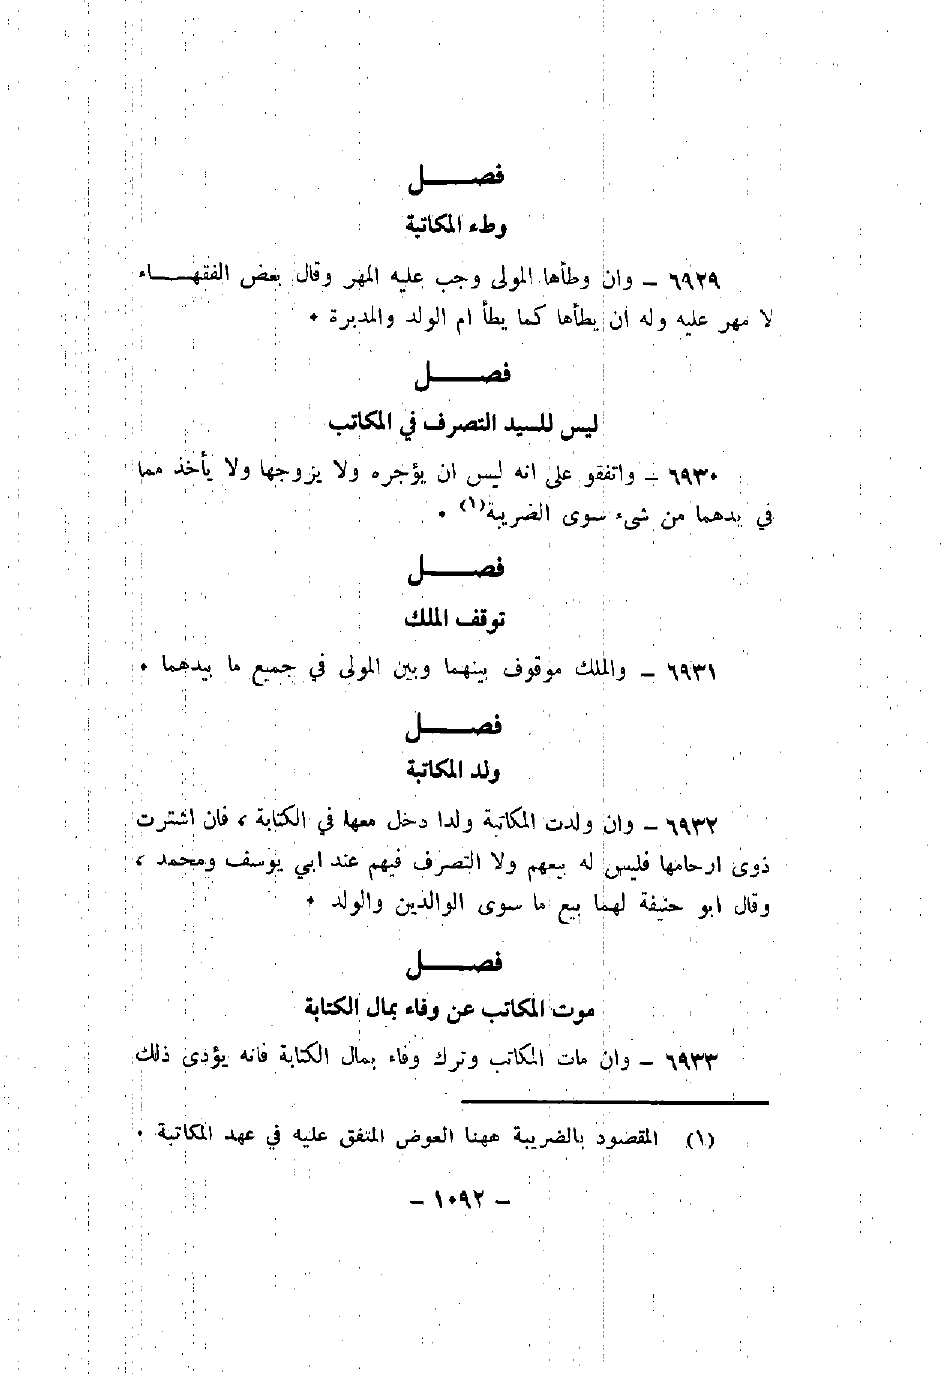 فصـــــل
وطء المكاتبة
٦٩٢٩ ــ وان وطأها المولى وجب عليه المهر وقال بعض الفقهـــاء
لا مهر عليه وله ان يطأها كما يطأ ام الولد والمدبرة ٠
فصـــــل
ليس للسيد التصرف في المكاتب
٦٩٣٠ ــ واتفقو على انه ليس ان يؤجره ولا يزوجها ولا يأخذ مما
في يدهما من شىء سوى الضريبة(١) ٠
فصـــــل
توقف الملك
٦٩٣١ ــ والملك موقوف بينهما وبين المولى في جميع ما بيدهما ٠
فصـــــل
ولد المكاتبة
٦٩٣٢ ــ وان ولدت المكاتبة ولدا دخل معها في الكتابة ، فان اشترت
ذوى ارحامها فليس له بيعهم ولا التصرف فيهم عند ابي يوسف ومحمد ،
وقال ابو حنيفة لهما بيع ما سوى الوالدين والولد ٠
فصـــــل
موت المكاتب عن وفاء بمال الكتابة
٦٩٣٣ ــ وان مات المكاتب وترك وفاء بمال الكتابة فانه يؤدى ذلك
(١) المقصود بالضريبة ههنا العوض المتفق عليه في عهد المكاتبة ٠
ــ ١٠٩٢ ــ